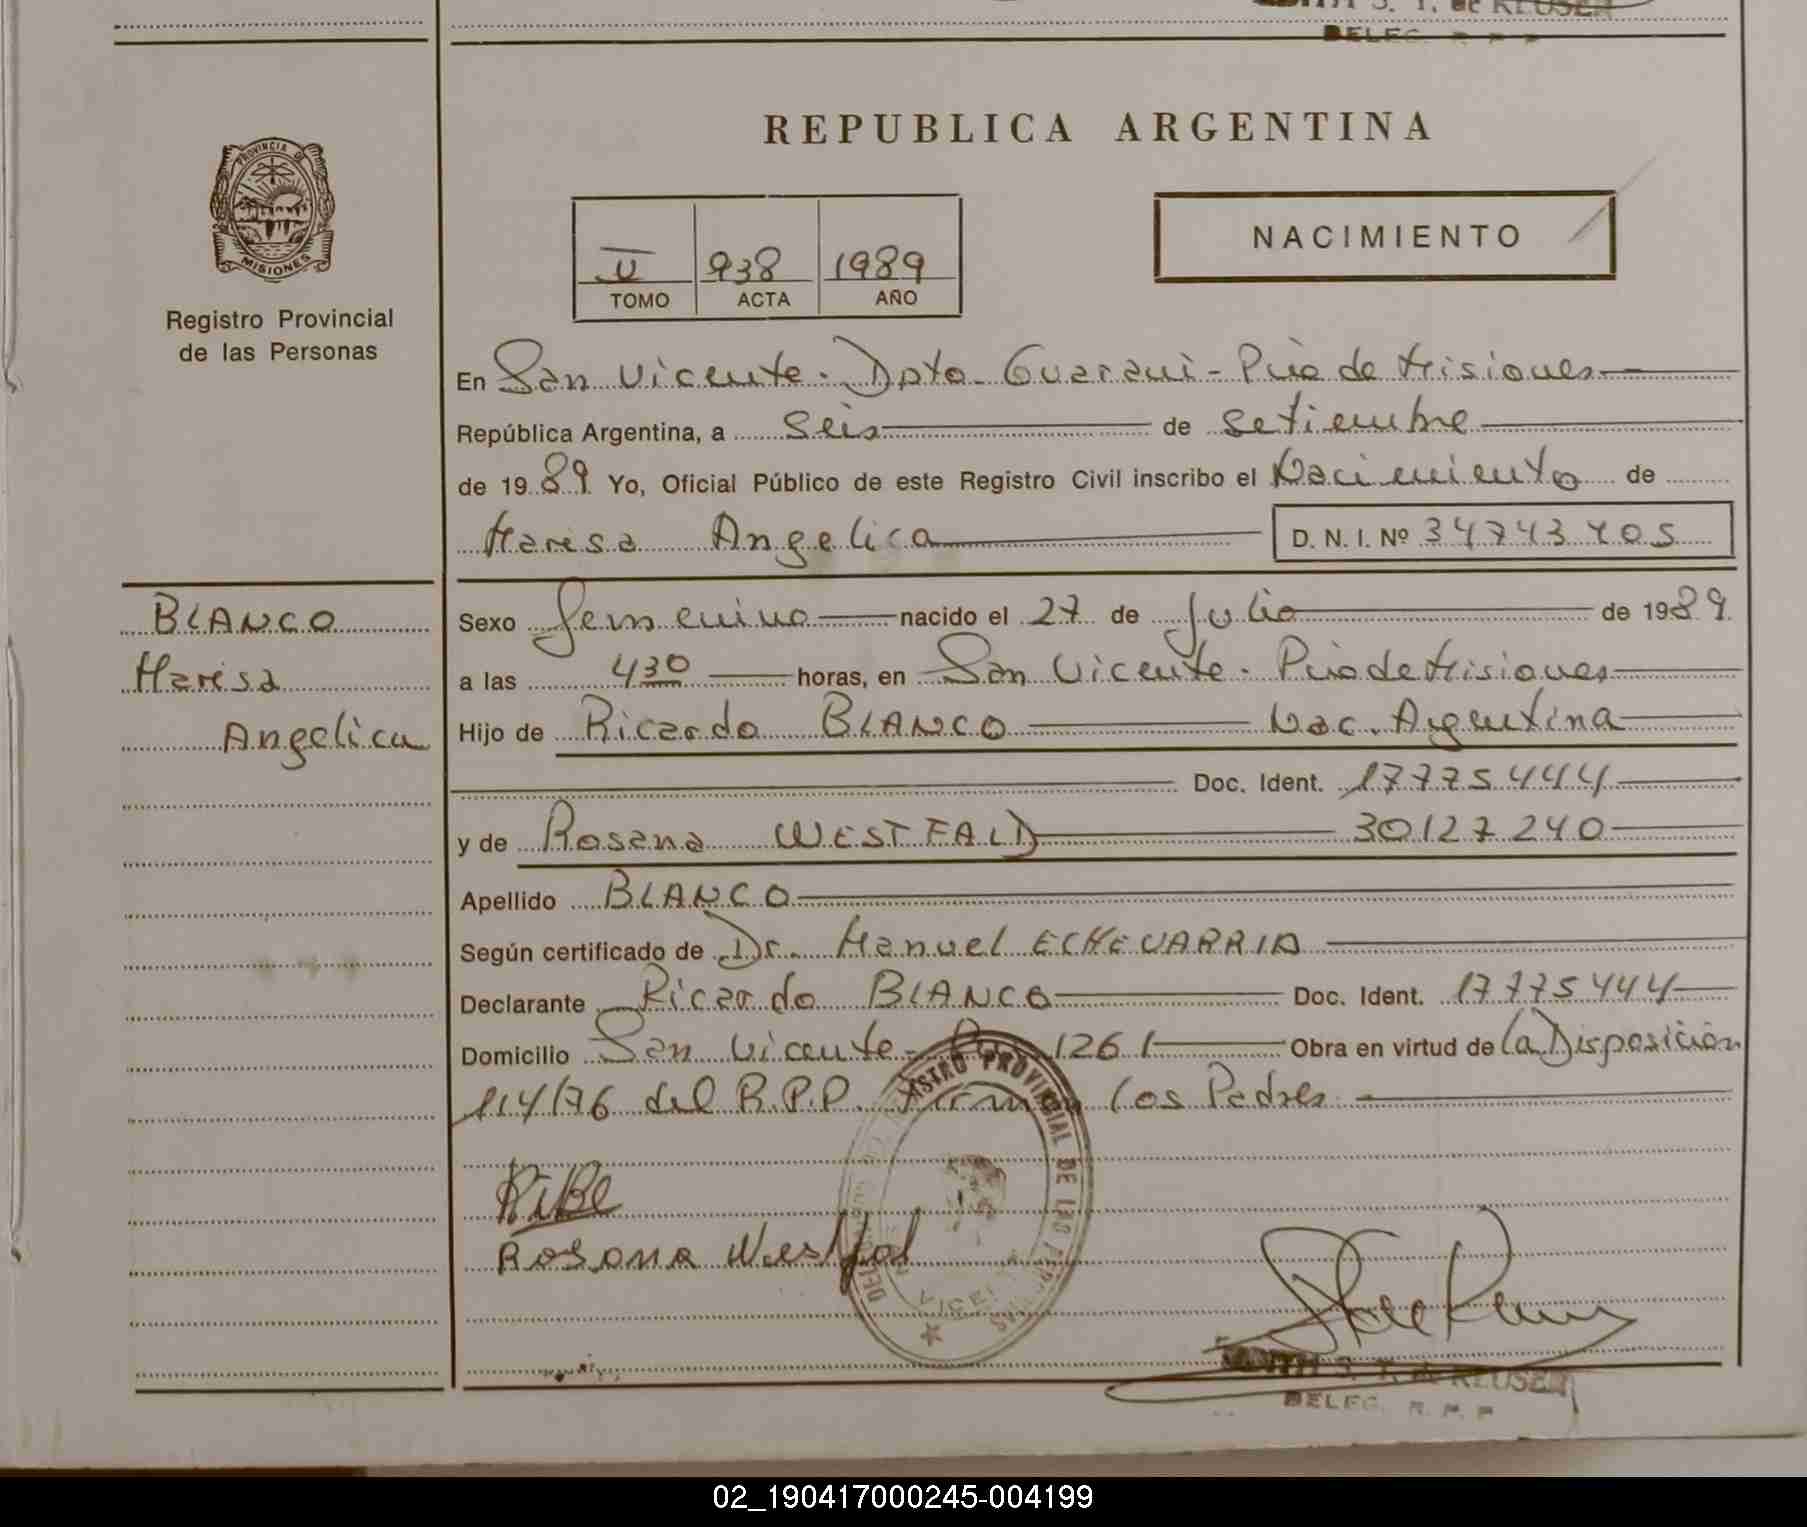 DELEG. R. P. P.
REPUBLICA ARGENTINA
PROVINCIA DE
MISIONES
Registro Provincial
de las Personas
NACIMIENTO
V 938 1989
TOMO ACTA AÑO
En San Vicente - Dpto - Guarani - Pcia de Misiones
República Argentina, a seis de setiembre
de 1989 Yo, Oficial Público de este Registro Civil inscribo el Nacimiento de
Marisa Angelica D. N. I. Nº 34743405
BLANCO
Marisa
Angelica
Sexo femenino nacido el 27 de Julio de 1989
a las 4 30 horas, en San Vicente - Pcia de Misiones
Hijo de Ricardo BLANCO Nac. Argentina
Doc. Ident. 17775444
y de Rosana WESTFALD 30127240
Apellido BLANCO
Según certificado de Dr. Manuel ECHEVARRIA
Declarante Ricardo BLANCO Doc. Ident. 17775444
Domicilio San Vicente - 1261 Obra en virtud de la Disposición
114/76 del R.P.P. Firman los Padres
Rosana Westfal
REGISTRO PROVINCIAL DE LAS PERSONAS
S. T. de KLUSER
DELEG. R. P. P.
02_190417000245-004199